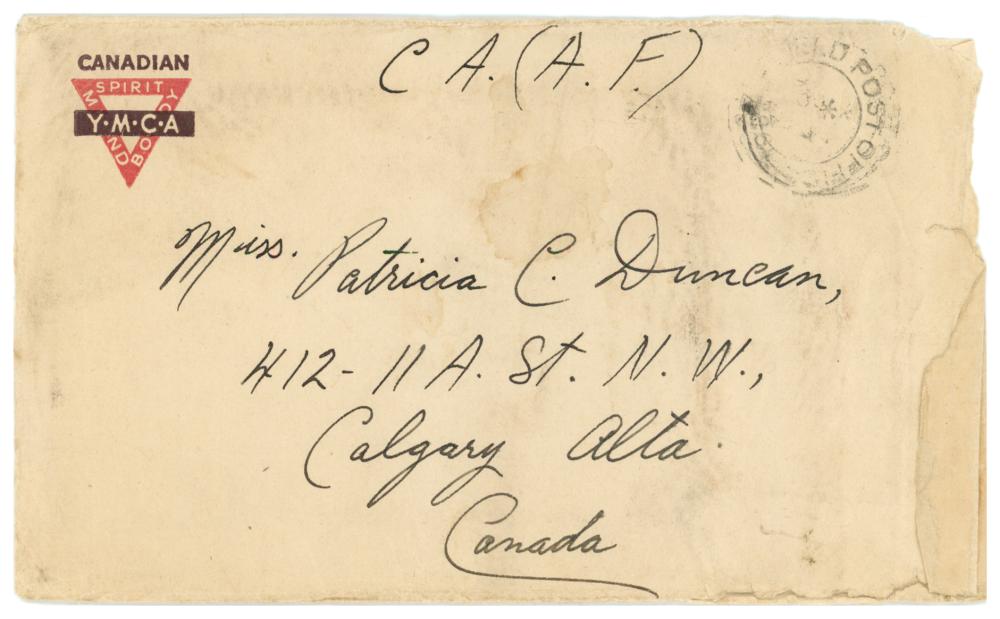 CANADIAN
SPIRIT
MIND
BODY
Y·M·C·A
C A. (A. F.)
FIELD POST OFFICE
Miss. Patricia C. Duncan,
412 - 11 A. St. N. W.,
Calgary Alta.
Canada